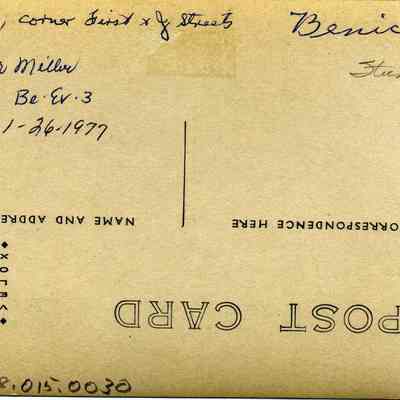 , corner First & J Streets
Benic
Miller
Be. Ev. 3
1-26-1977
NAME AND ADDRE
CORRESPONDENCE HERE
VELOX
POST CARD
8.015.0030